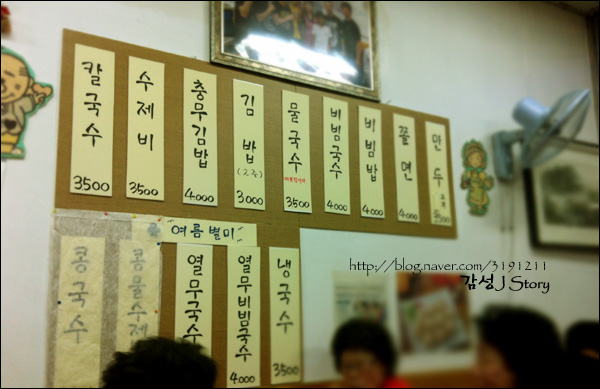 칼국수 3500
수제비 3500
충무김밥 4000
김밥 (2줄) 3000
물국수 3500
비빔국수 4000
비빔밥 4000
쫄면 4000
만두
여름별미
콩국수
콩물수제
열무국수
열무비빔국수 4000
냉국수 3500
http://blog.naver.com/3191211
감성J Story